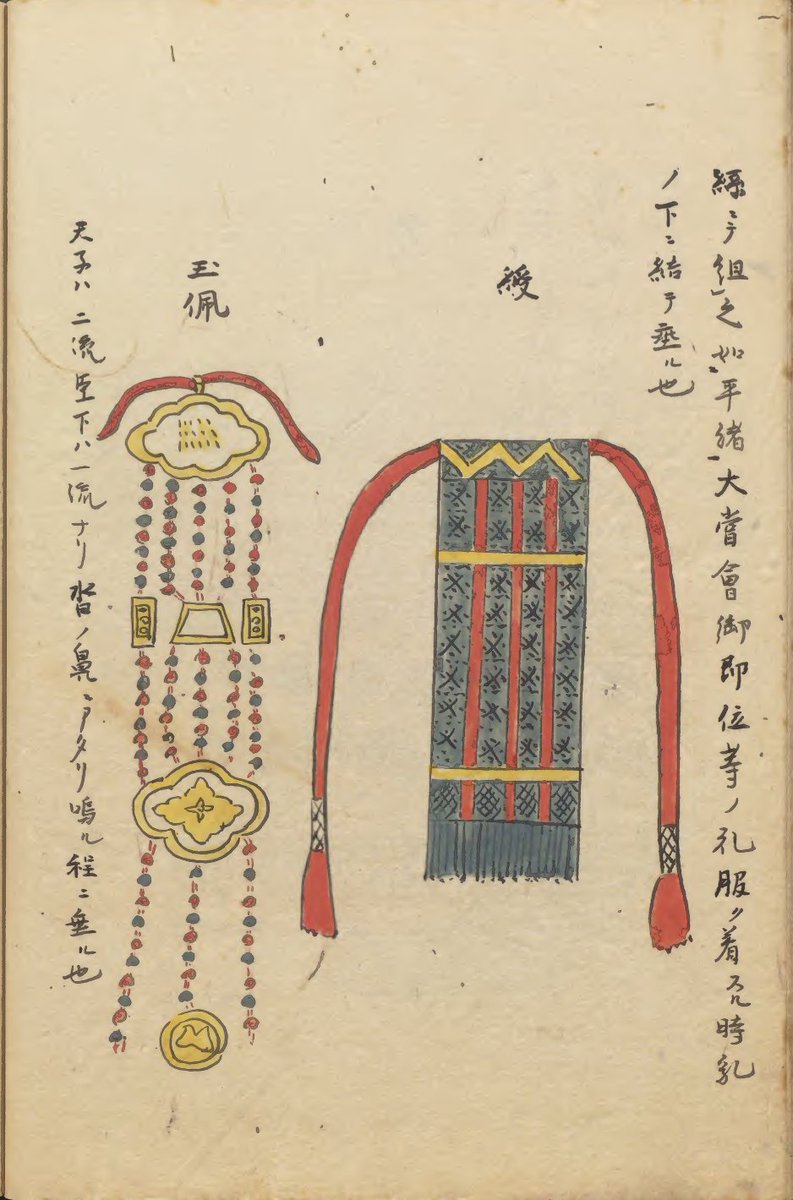 綬
絲ニテ組レ之如二平緒一大嘗會御即位等ノ礼服ヲ着スル時乳
ノ下ニ結テ垂ル也
玉佩
天子ハ二流臣下ハ一流ナリ沓ノ鼻ニアタリ鳴ル程ニ垂ル也